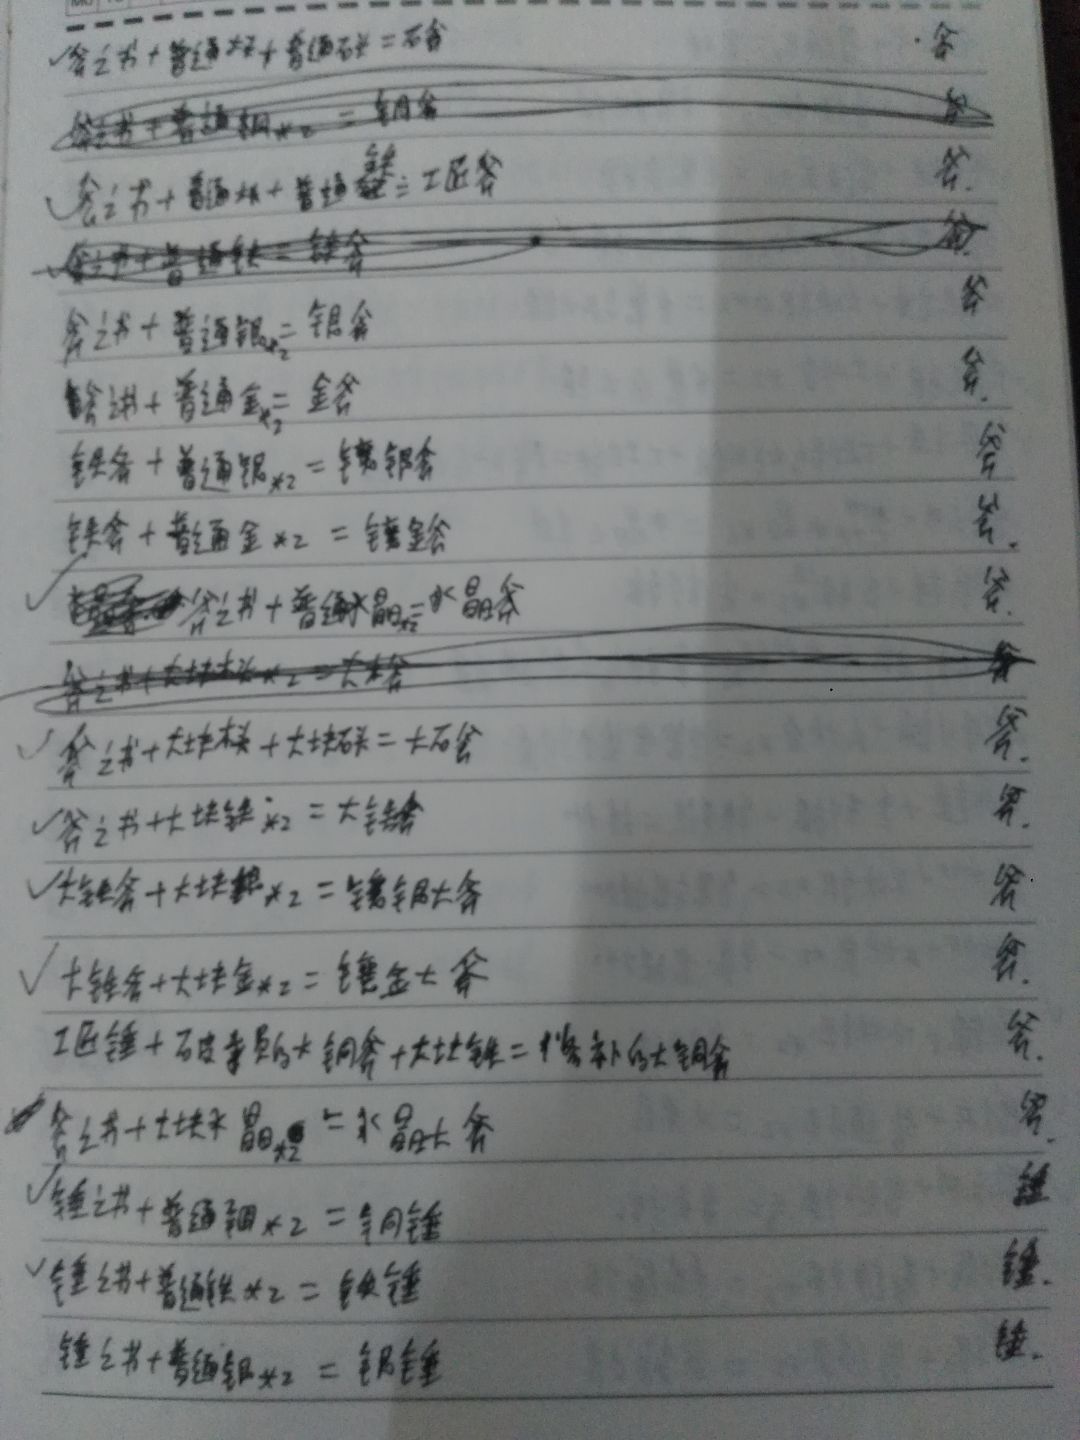 斧之书+普通木头+普通石头=石斧 斧
斧之书+普通铜*2=铜斧 斧
斧之书+普通木头+普通铁=工匠斧 斧.
斧之书+普通铁=铁斧 斧.
斧之书+普通银*2=银斧 斧
斧之书+普通金*2=金斧 斧.
铁斧+普通银*2=镶银斧 斧
铁斧+普通金*2=镶金斧 斧.
斧之书+普通水晶*2=水晶斧 斧.
斧之书+大块木头*2=大木斧 斧
斧之书+大块木头+大块石头=大石斧 斧.
斧之书+大块铁*2=大铁斧 斧.
大铁斧+大块银*2=镶银大斧 斧
大铁斧+大块金*2=镶金大斧 斧.
工匠锤+石皮耒员的大铜斧+大块铁=修补的大铜斧 斧.
斧之书+大块水晶*2=水晶大斧 斧.
锤之书+普通铜*2=铜锤 锤
锤之书+普通铁*2=铁锤 锤.
锤之书+普通银*2=银锤 锤.